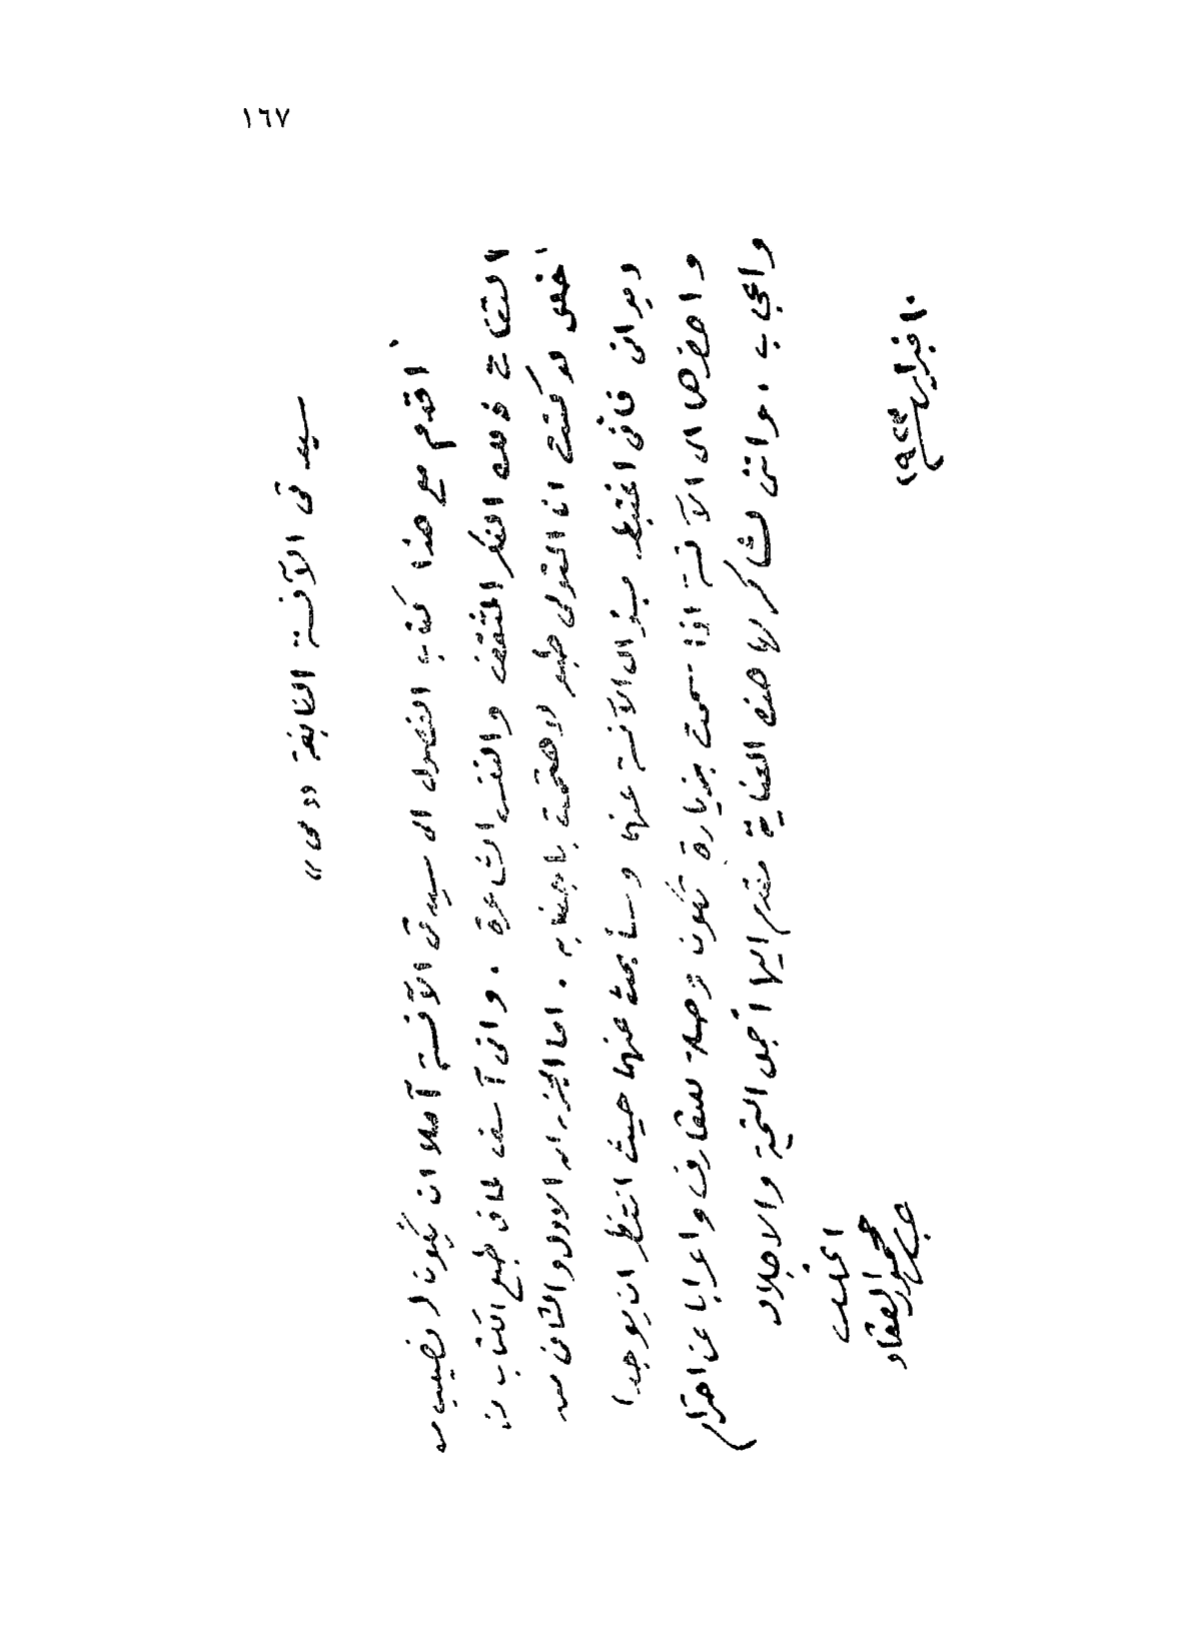 ١٦٧
سيدتى الآنسة النابغة «مى»
أقدم مع هذا كتاب الفصول الى سيدتى الآنسة آملا ان يكون له نصيب من
التفات ذلك الفكر المثقف والنفس الشاعرة . وانى آسف لحال طبع الكتاب من
لو كنت انا المتولى طبعه لاهتممت . اما الجزءان الاول والثانى من
ديوانى فانى اغتبط بسؤال الآنسة عنهما وسأبحث عنهما حيث انتظر ان يوجدا
واحضرهما الى الآنسة اذا سمحت بزيارة تكون فرصة للتعارف واعرابا عن احترام
واعجاب . واننى لشاكر لها هذه العناية مقدم اليها أجمل التحية والاجلال
المخلص
عباس محمود العقاد
١٠ فبراير